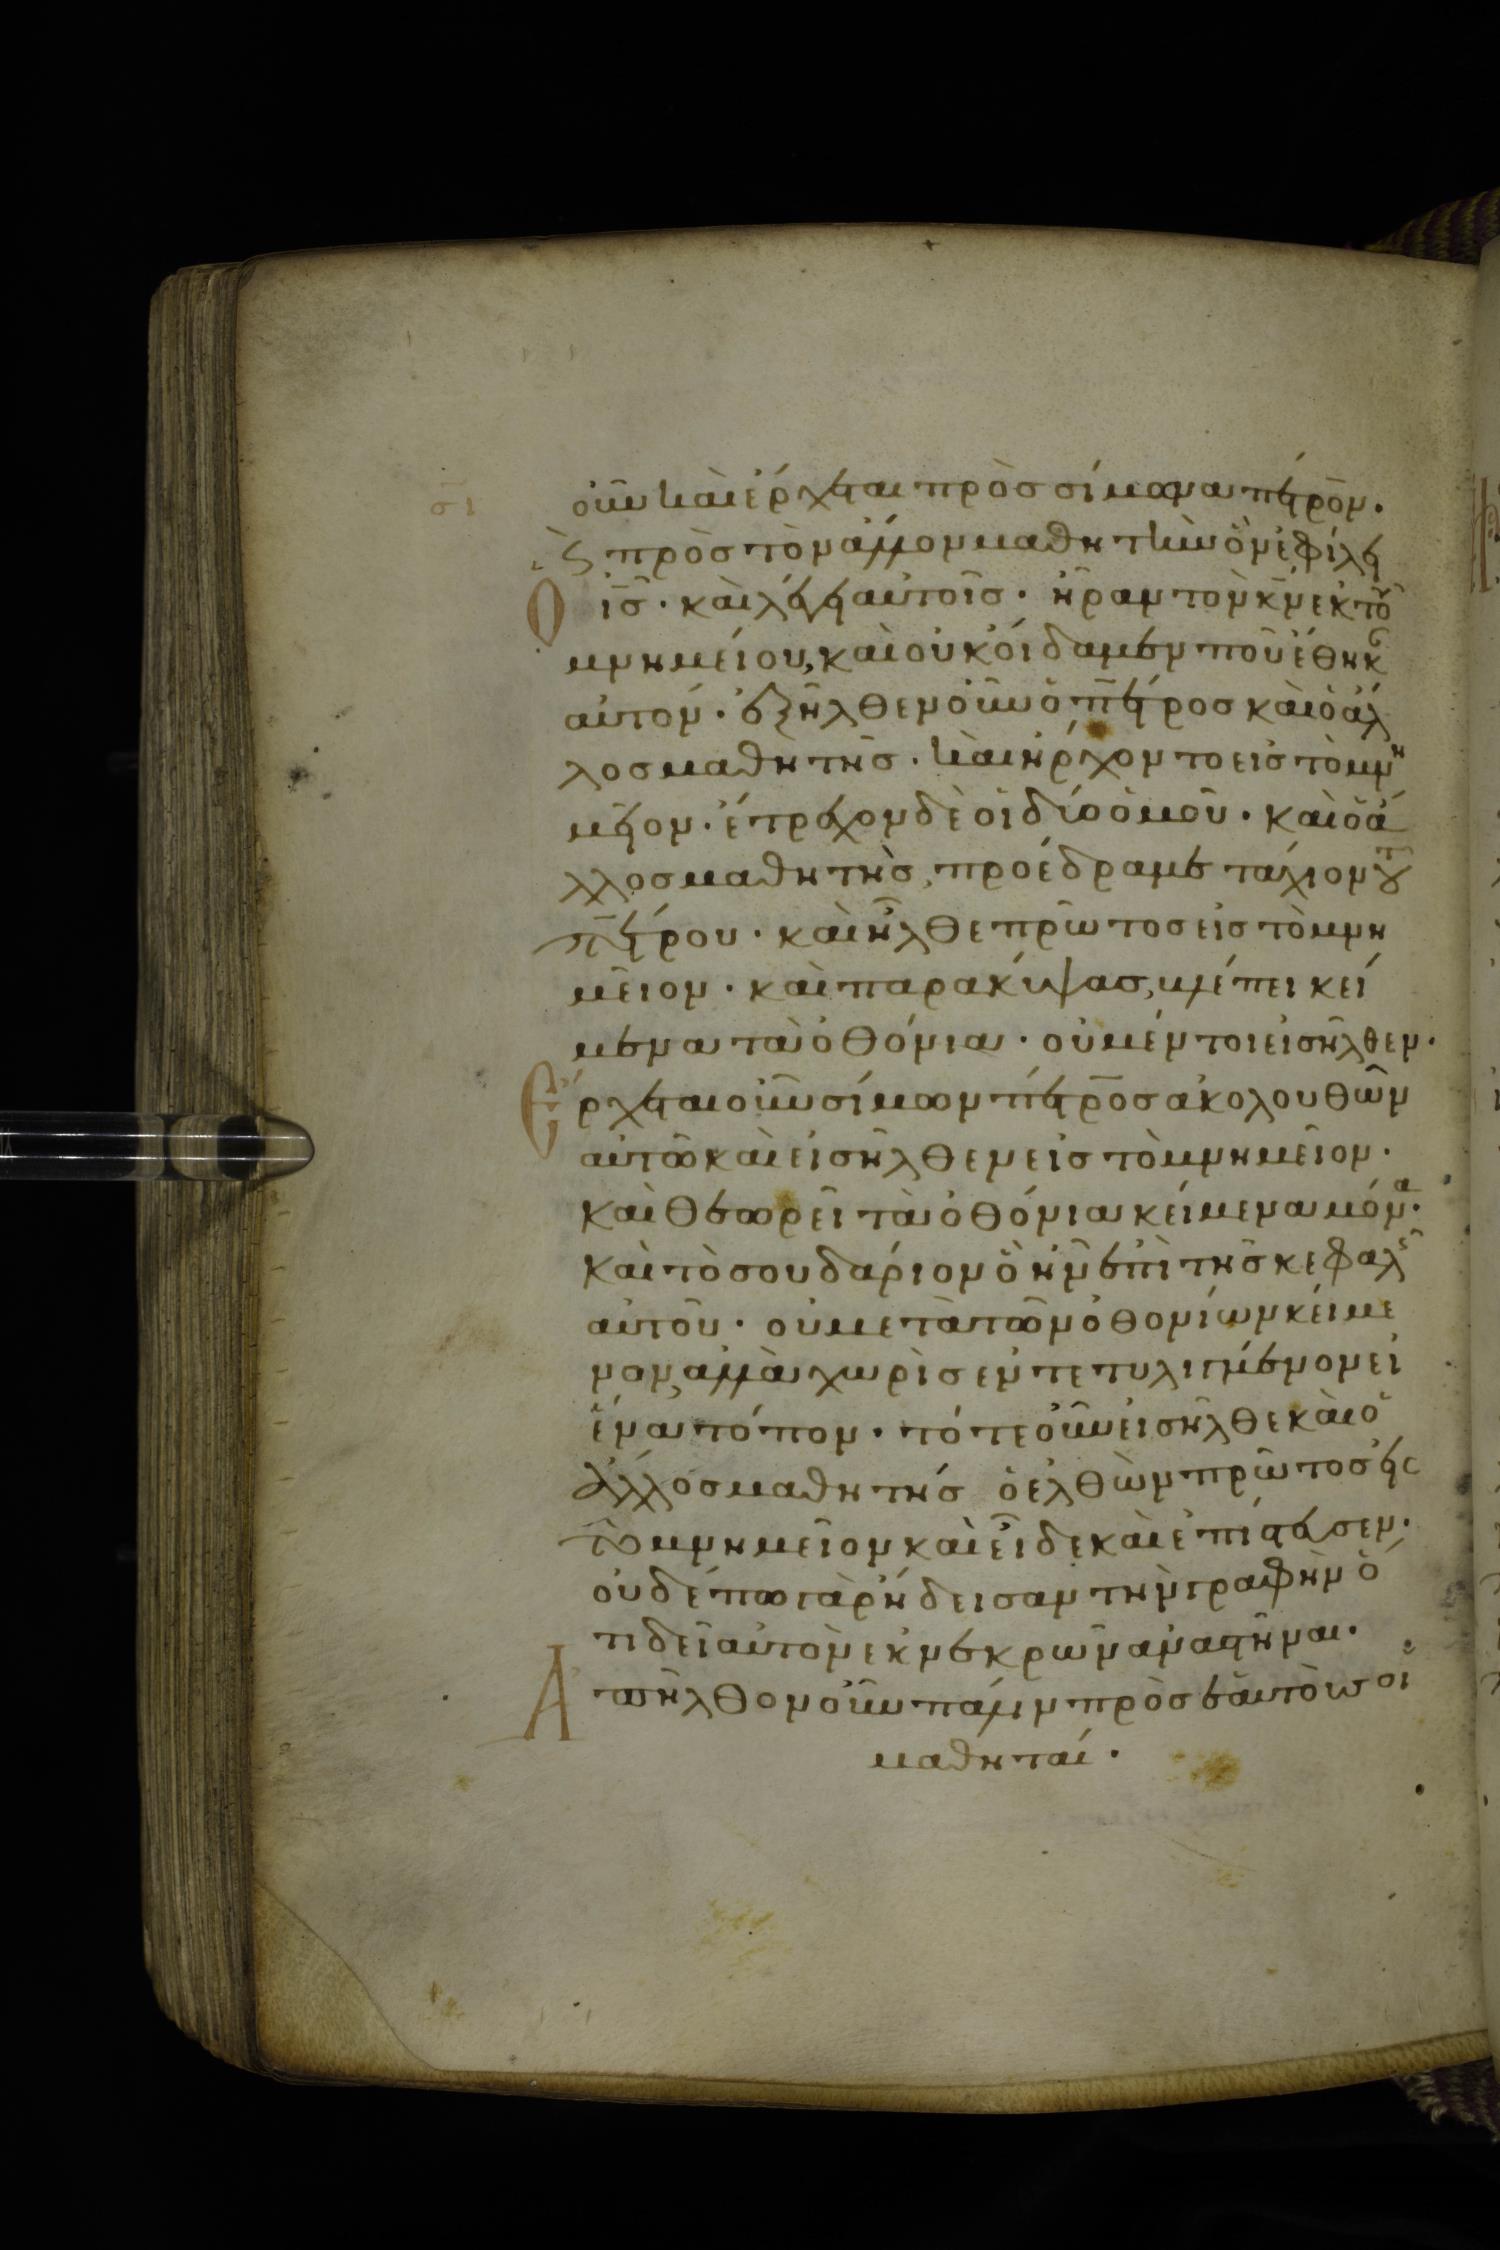 σϊ οὖν καὶ ἔρχεται πρὸς σίμωνα πέτρον·
καὶ πρὸς τὸν ἄλλον μαθητὴν ὃν ἐφίλει
Ὁ ι̅σ̅· καὶ λέγει αὐτοῖς· ἦραν τὸν κ̅ν̅ ἐκ τοῦ
μνημείου, καὶ οὐκ οἴδαμεν ποῦ ἔθηκ
αὐτόν· ἐξῆλθεν οὖν ὁ πέτρος καὶ ὁ ἄλ
λος μαθητῆς· καὶ ἤρχοντο εἰς τὸ μνη
μεῖον· ἔτρεχον δὲ οἱ δύο ὁμοῦ· καὶ ὁ ἄ
λλος μαθητὴς, προέδραμε τάχιον τοῦ
πέτρου· καὶ ἦλθε πρῶτος εἰς τὸ μνη
μεῖον· καὶ παρακύψας, βλέπει κεί
μενα τὰ ὀθόνια· οὐ μέντοι εἰσῆλθεν·
Ἔρχεται οὖν σίμων πέτρος ἀκολουθῶν
αὐτῶ καὶ εἰσῆλθεν εἰς τὸ μνημεῖον·
καὶ θεωρεῖ τὰ ὀθόνια κείμενα μόνα·
καὶ τὸ σουδάριον ὃ ἦν ἐπὶ τῆς κεφαλῆς
αὐτοῦ· οὐ μετὰ τῶν ὀθονίων κείμε
νον, ἀλλὰ χωρὶς ἐντετυλιγμένον εἰ
ἕνα τόπον· τότε οὖν εἰσῆλθε καὶ ὁ
ἄλλος μαθητής ὁ ἐλθὼν πρῶτος εἰς
τὸ μνημεῖον καὶ εἶδε καὶ ἐπίστευσεν·
οὐδέπω γὰρ ἤδεισαν τὴν γραφὴν ὅ
τι δεῖ αὐτὸν ἐκ νεκρῶν ἀναστῆναι·
Ἀπῆλθον οὖν πάλιν πρὸς ἑαυτοὺς οἱ
μαθηταί·